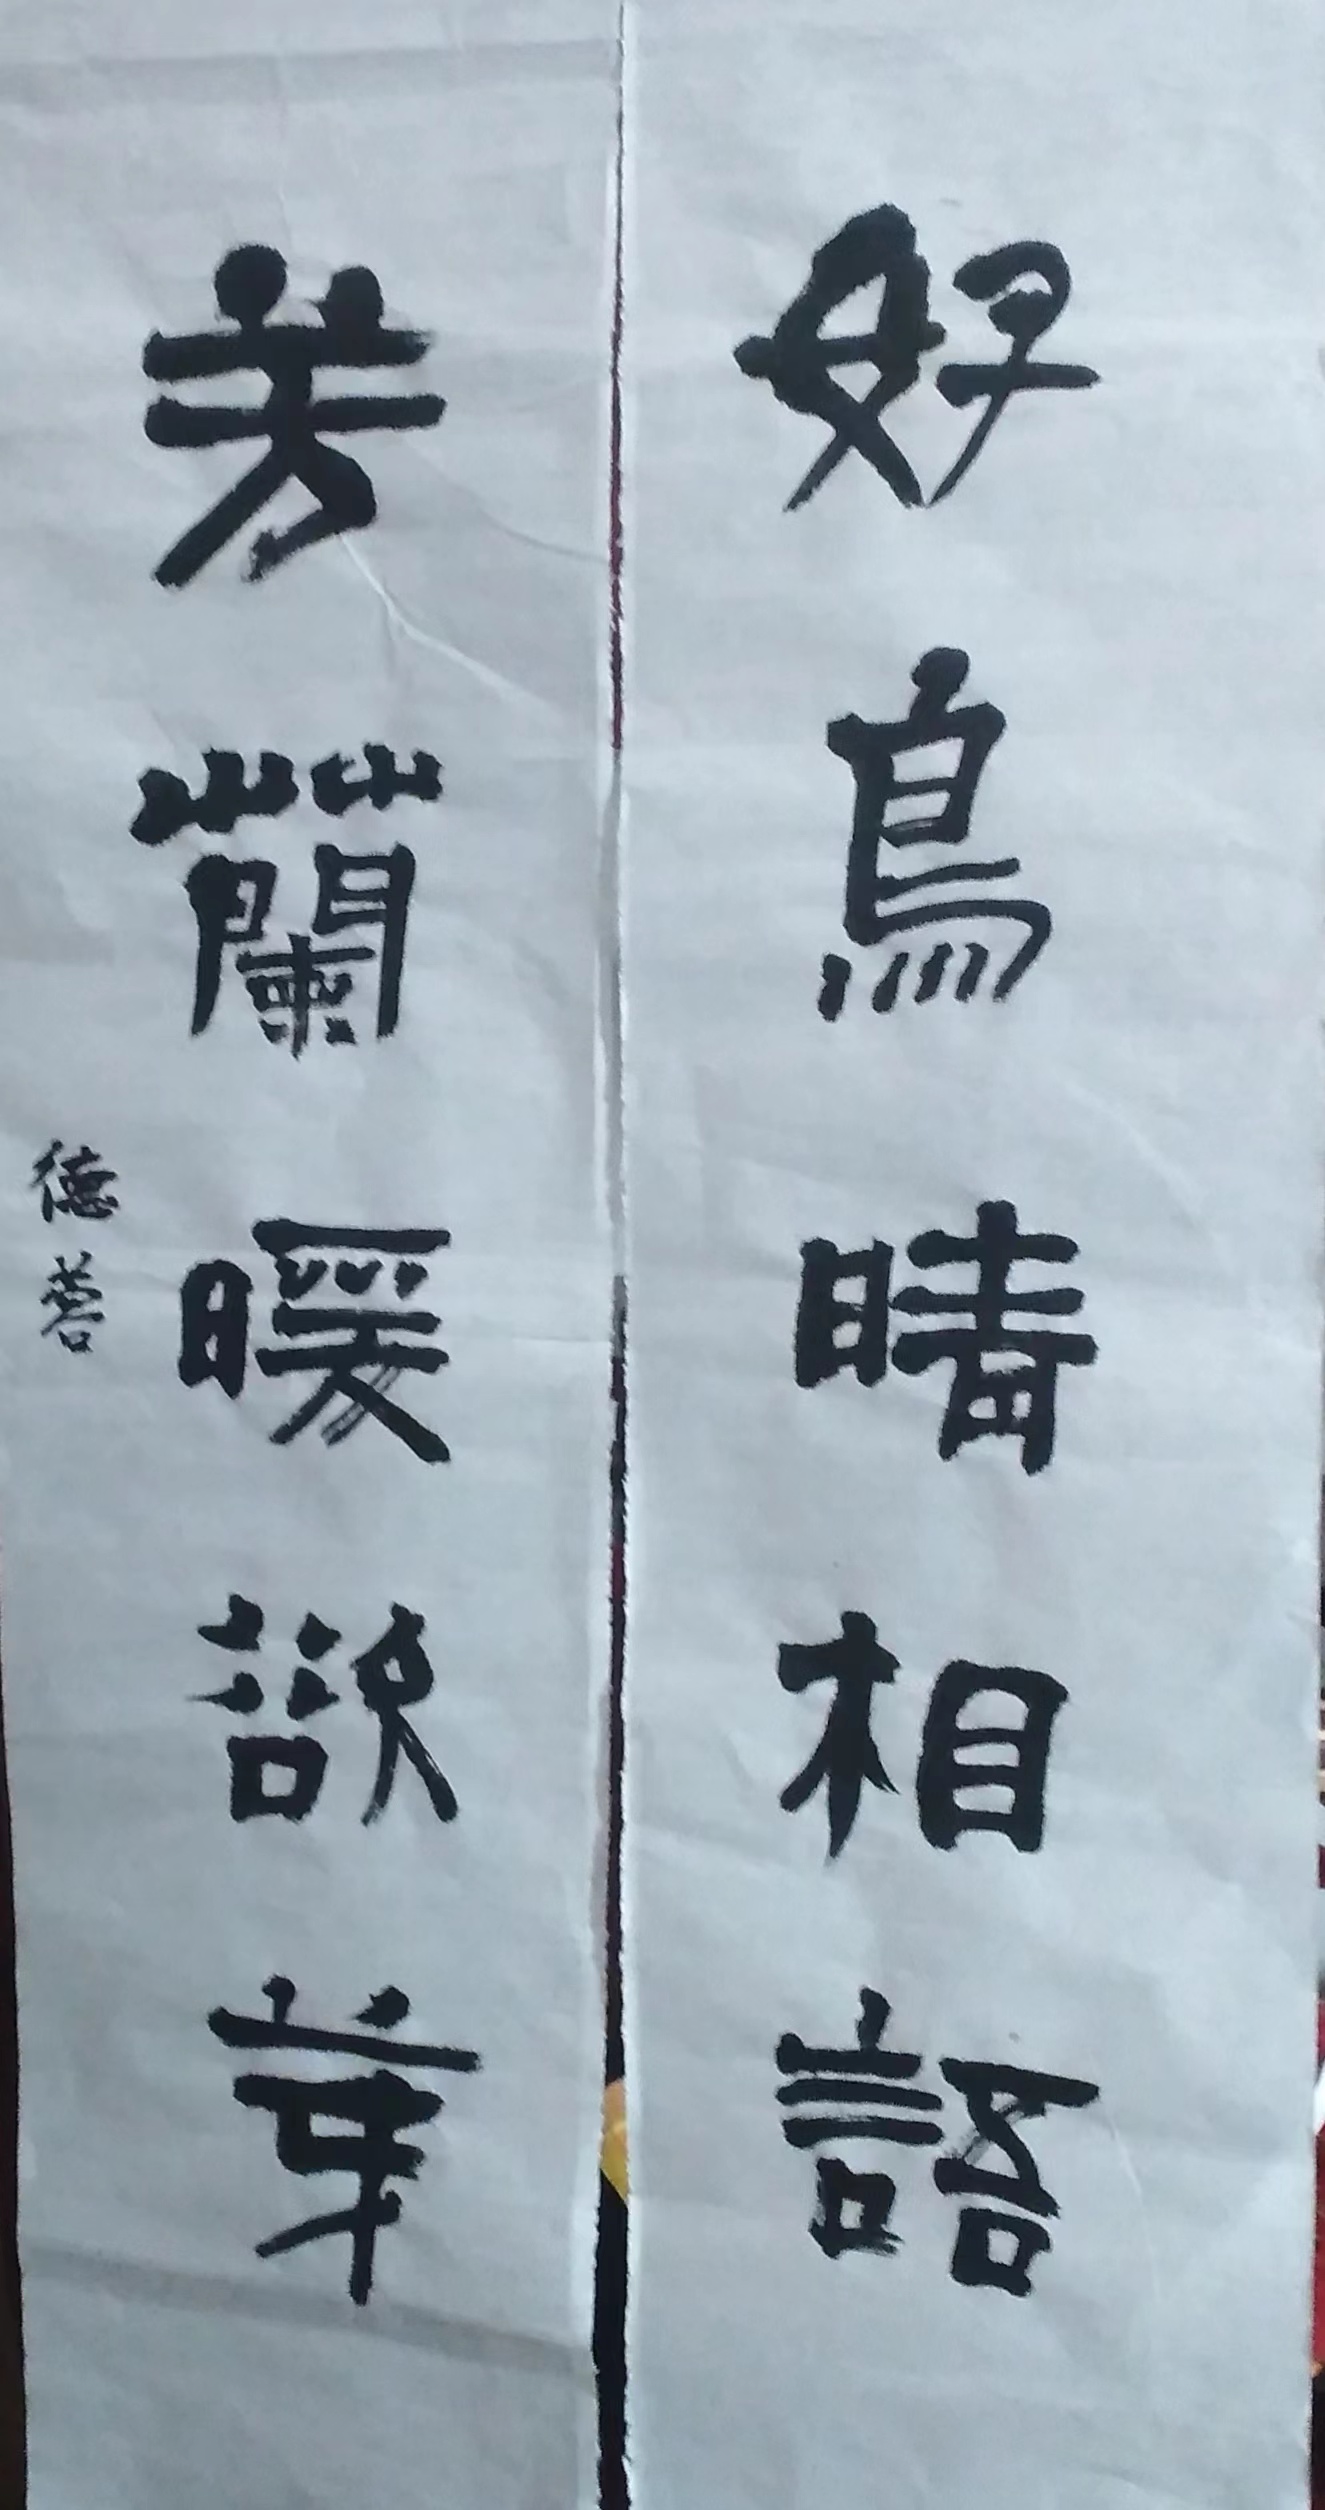 好鳥晴相語
芳蘭暖欲芽
德蓉